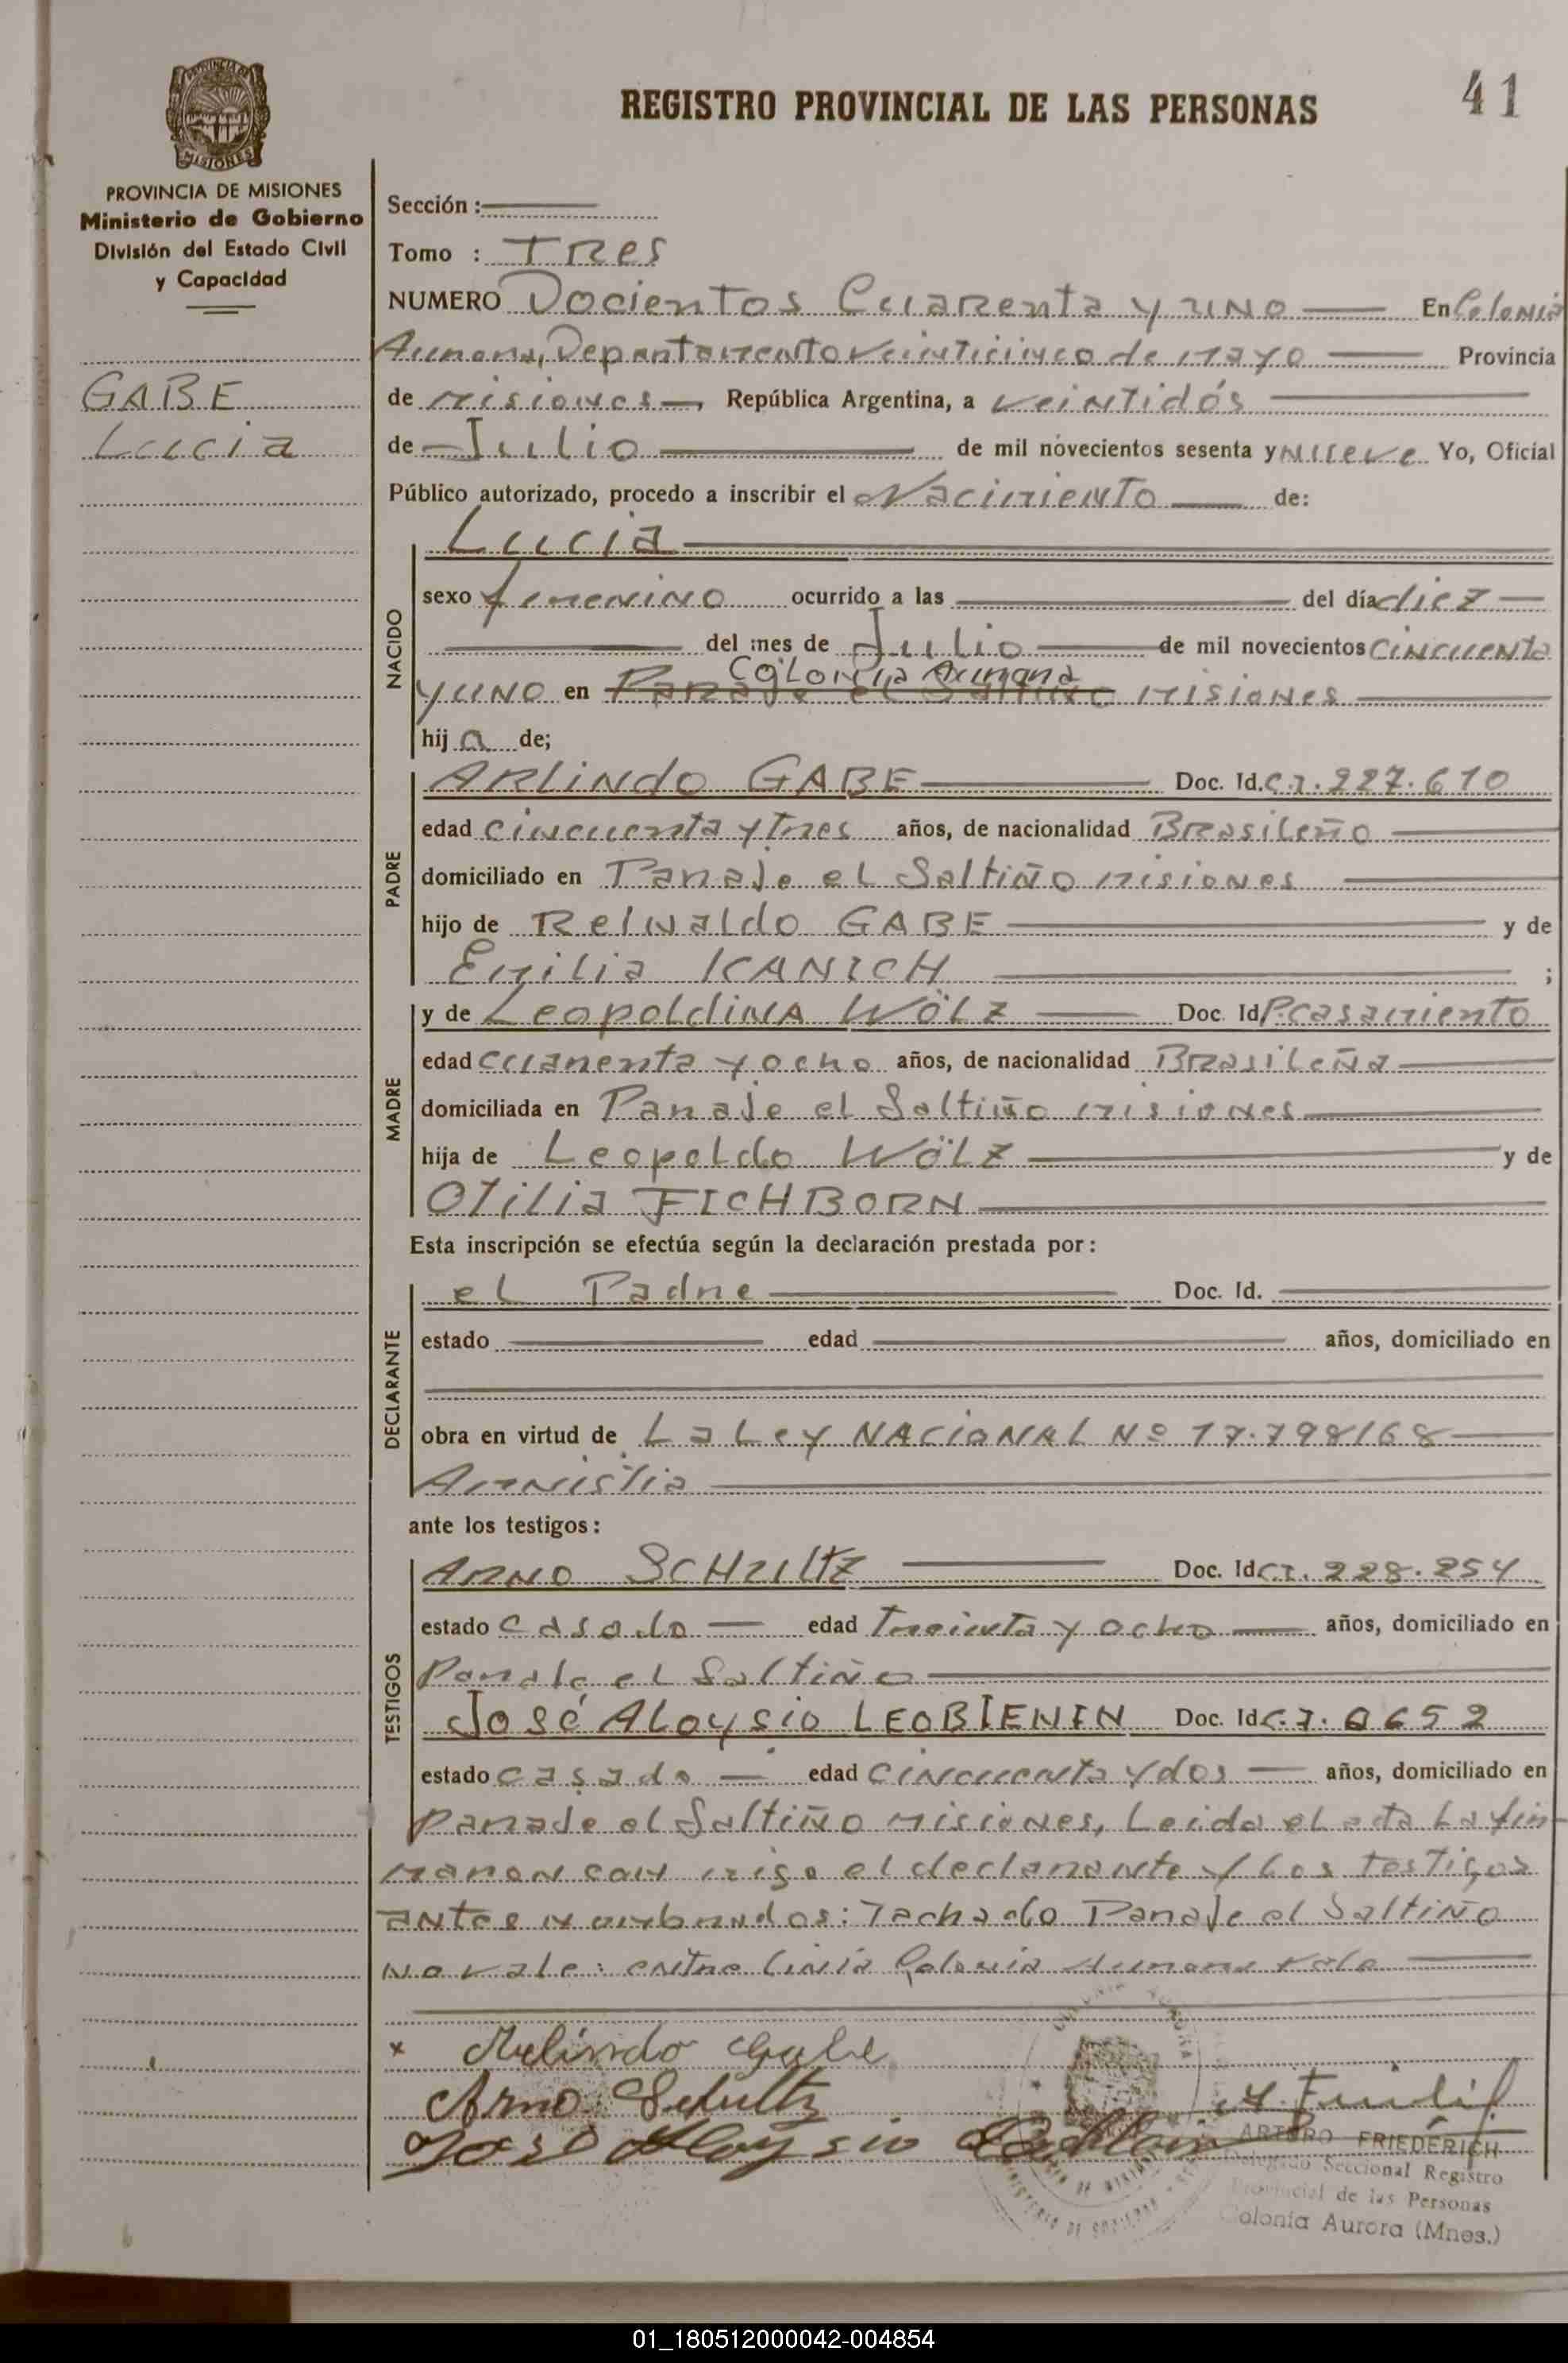 REGISTRO PROVINCIAL DE LAS PERSONAS
41
PROVINCIA DE MISIONES
MISIONES
PROVINCIA DE MISIONES
Ministerio de Gobierno
División del Estado Civil
y Capacidad
GABE
Lucia
Sección :
Tomo : TRes
NUMERO Docientos CuaRenta y uno En Colonia
Aurora, Departamento veinticinco de mayo Provincia
de misiones República Argentina, a veintidós
de Julio de mil novecientos sesenta y Nueve Yo, Oficial
Público autorizado, procedo a inscribir el Nacimiento de:
Lucia
NACIDO
sexo femenino ocurrido a las del día diez
del mes de Julio de mil novecientos cincuenta
y uno en Colonia Aurora
Paraje el Saltiño misiones
hij a de;
PADRE
ARLindo GABE Doc. Id. C.I. 227.610
edad cincuenta y tres años, de nacionalidad Brasileño
domiciliado en Paraje el Saltiño misiones
hijo de Reinaldo GABE y de
Emilia KANICH ;
MADRE
y de Leopoldina WÖLZ Doc. Id P. casamiento
edad cuarenta y ocho años, de nacionalidad Brasileña
domiciliada en Paraje el Saltiño misiones
hija de Leopoldo WÖLZ y de
Otilia EICHBORN
Esta inscripción se efectúa según la declaración prestada por:
DECLARANTE
el Padre Doc. Id.
estado edad años, domiciliado en
obra en virtud de La Ley NACIONAL Nº 17.798/68
Amnistia
ante los testigos:
TESTIGOS
ARNO SCHULTZ Doc. Id C.I. 228.254
estado casado edad Treinta y ocho años, domiciliado en
Paraje el Saltiño
José ALoysio LEOBLENIN Doc. Id C.I. 0652
estado casado edad cincuenta y dos años, domiciliado en
Paraje el Saltiño misiones, Leida el acta La fir-
maron con migo el declarante y los testigos
antes nombrados: Tachado Paraje el Saltiño
no vale: entre linia Colonia Aurora vale
x Arlindo Gabe
Arno Schultz
José Aloysio
ARTURO FRIEDERICH
Delegado Seccional Registro
Provincial de las Personas
Colonia Aurora (Mnes.)
01_180512000042-004854